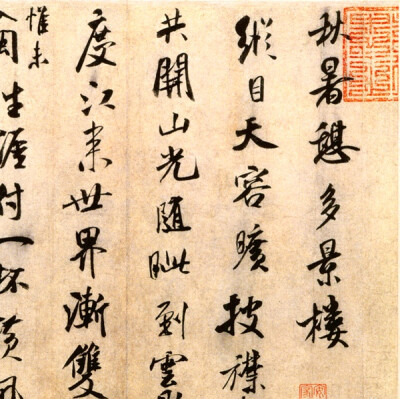 秋暑憩多景楼
縱目天容曠披襟
共開山光隨眦到雲
度江来世界漸雙
惟未
生涯付一杯黄